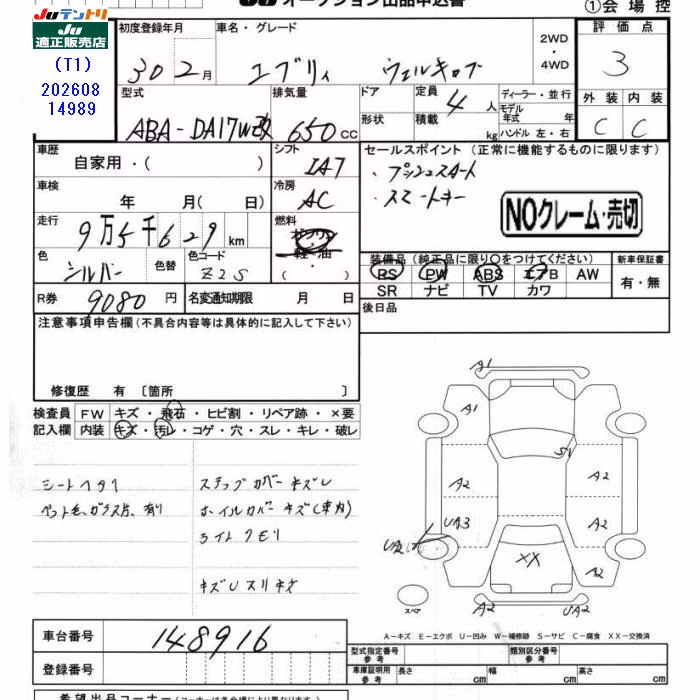 Juテントリ
Ju
適正販売店
(T1)
202608
14989
オークション出品申込書
①会場控
初度登録年月
30 2月
車名・グレード
エブリィ ウェルキャブ
2WD
・
4WD
評価点
3
外装 内装
C C
型式
ABA-DA17W改
排気量
650cc
ドア
形状
定員
4人
積載
kg
ディーラー・並行
モデル
年式 年
ハンドル 左・右
車歴
自家用・( )
シフト
IA7
車検
年 月( 日)
冷房
AC
走行
9万5千629km
燃料
ガソリン
・
軽油
( ・ )
色
シルバー
色替
色コード
Z2S
R券
9080円
名変通知期限 月 日
セールスポイント(正常に機能するものに限ります)
・プッシュスタート
・スマートキー
NOクレーム・売切
装備品(純正品に限り○をつけてください)
PS PW ABS エアB AW
SR ナビ TV カワ
新車保証書
有・無
後日品
注意事項申告欄(不具合内容等は具体的に記入して下さい)
修復歴 有〔箇所 〕
検査員
記入欄
FW キズ・飛石・ヒビ割・リペア跡・×要
内装 キズ・汚レ・コゲ・穴・スレ・キレ・破レ
シートヘタリ
ペット毛、ガラス片、有り
ステップカバーキズU
ホイルカバーキズ(車内)
ライトクモリ
キズUスリキズ
A1
A1
SV
A2
A2
UA3
A2
UA2
XX
A2
A2
UA2
スペア
A-キズ E-エクボ U-凹み W-補修跡 S-サビ C-腐食 XX-交換済
車台番号
148916
登録番号
型式指定番号
参考
類別区分番号
参考
車庫証明用
参考
長さ cm 幅 cm 高さ cm
希望出品コーナー(コーナーは会場により異なります)